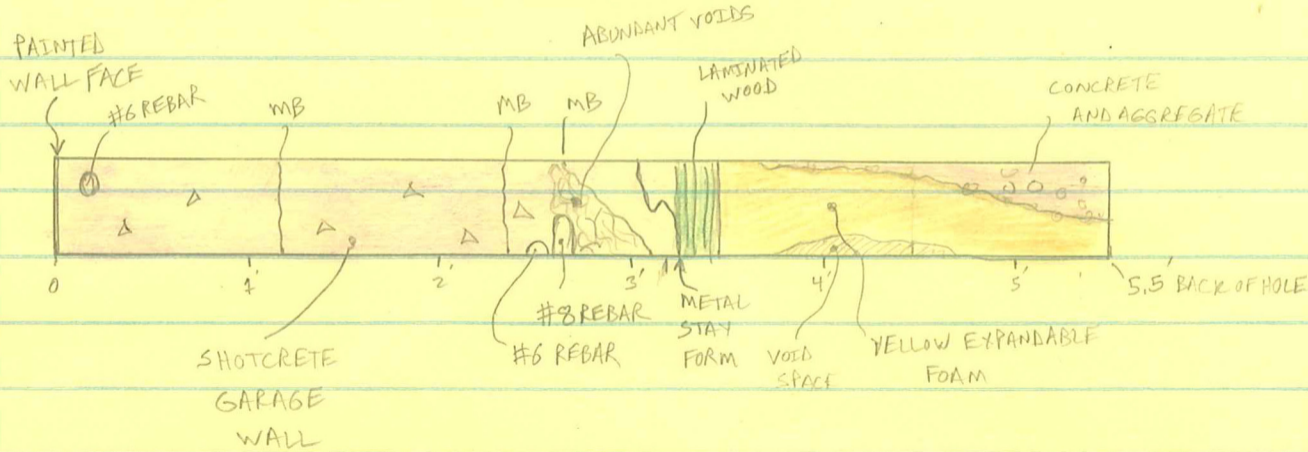 PAINTED
WALL FACE
#6 REBAR
MB
MB
MB
ABUNDANT VOIDS
LAMINATED
WOOD
CONCRETE
AND AGGREGATE
0
1'
2'
3'
4'
5'
5.5' BACK OF HOLE
SHOTCRETE
GARAGE
WALL
#6 REBAR
#8 REBAR
METAL
STAY
FORM
VOID
SPACE
YELLOW EXPANDABLE
FOAM